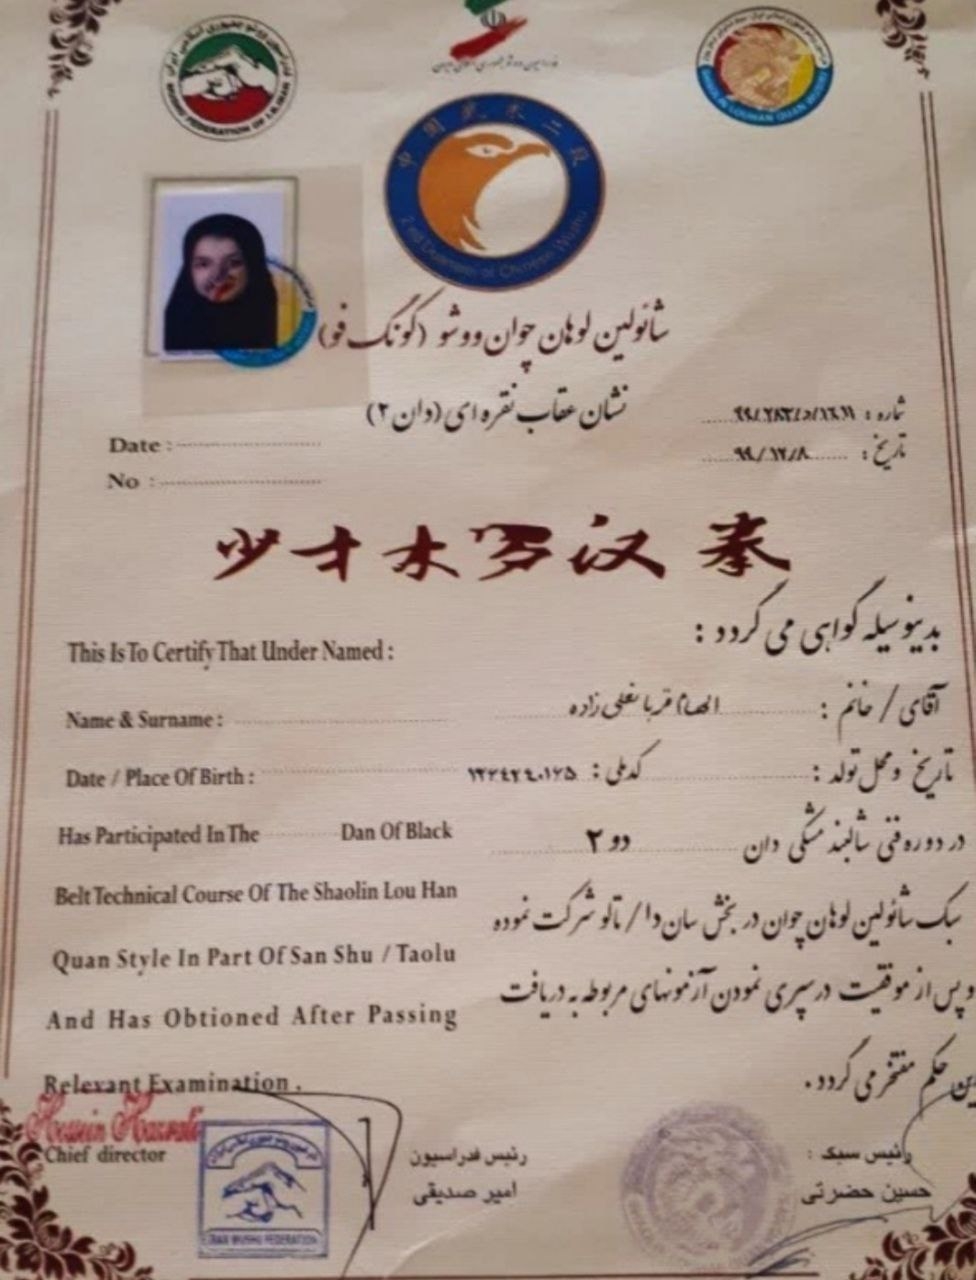 WUSHU FEDERATION OF I.R.IRAN
中国武术二段
2 nd Duanwei of Chinese Wushu
شائولین لوهان چوان ووشو (کونگ فو)
نشان عقاب نقره ای (دان ۲)
شماره :
تاریخ : ۹۹/۱۲/۸
Date :
No :
少才木罗汉拳
بدینوسیله گواهی می گردد :
This Is To Certify That Under Named :
آقای / خانم : الهام قربانعلی زاده
Name & Surname :
تاریخ و محل تولد : کدملی :
Date / Place Of Birth :
در دوره فنی شالبند مشکی دان دو ۲
Has Participated In The Dan Of Black
سبک شائولین لوهان چوان در بخش سان دا / تالو شرکت نموده
Belt Technical Course Of The Shaolin Lou Han
Quan Style In Part Of San Shu / Taolu
و پس از موفقیت در سپری نمودن آزمونهای مربوطه به دریافت
And Has Obtioned After Passing
این حکم مفتخر می گردد .
Relevant Examination .
Chief director
رئیس فدراسیون
امیر صدیقی
رئیس سبک :
حسین حضرتی
IRAN WUSHU FEDERATION